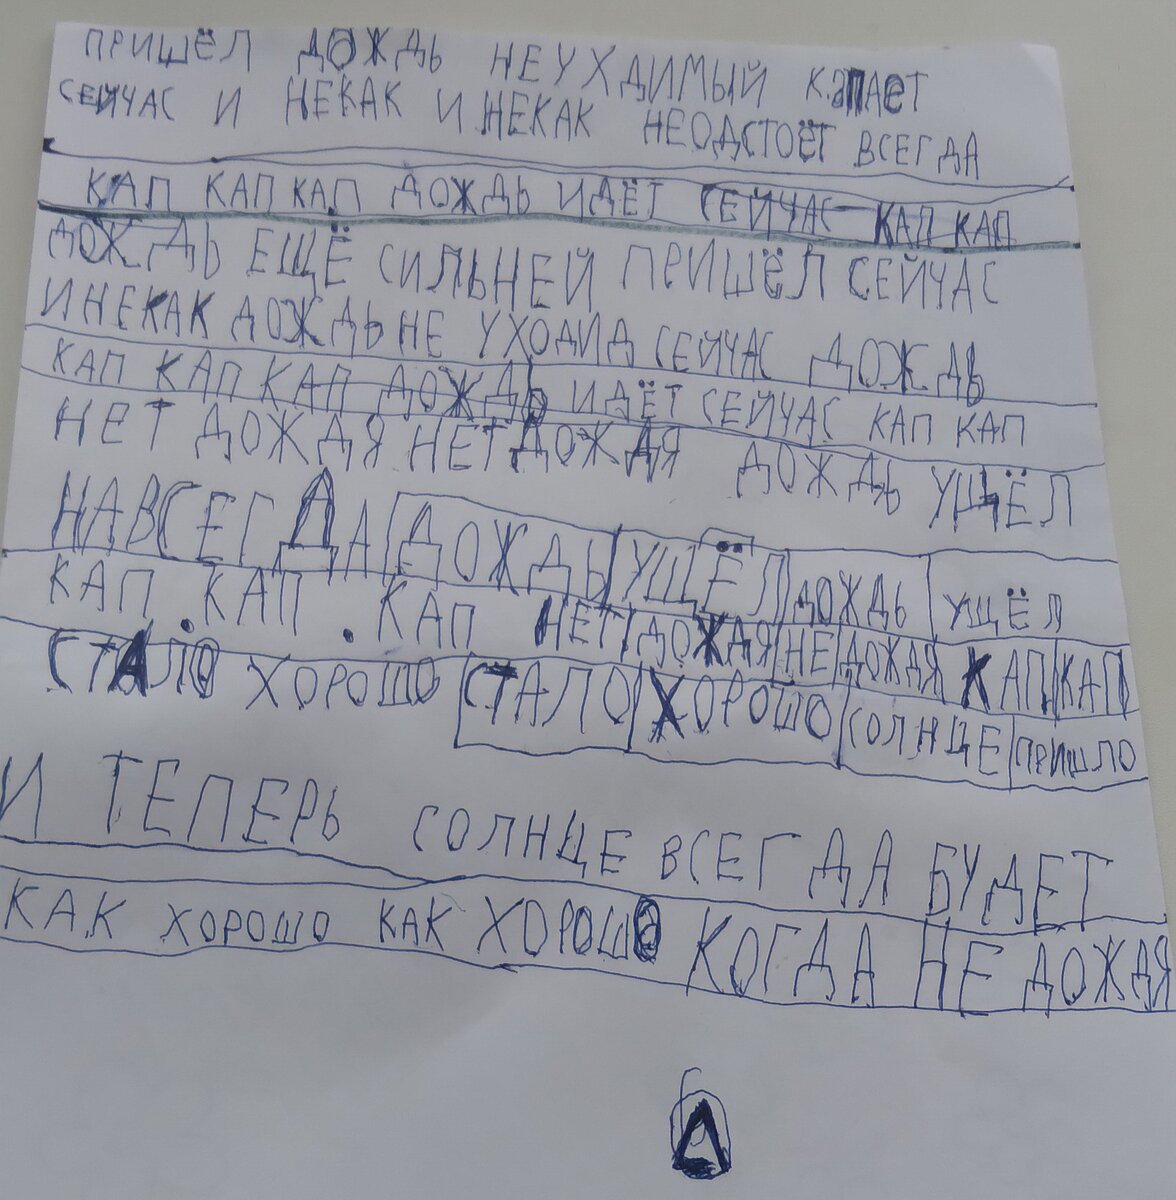 ПРИШЁЛ ДОЖДЬ НЕУХДИМЫЙ КАПАЕТ
СЕЙЧАС И НЕКАК И НЕКАК НЕОДСТОЁТ ВСЕГДА
КАП КАП КАП ДОЖДЬ ИДЁТ СЕЙЧАС КАП КАП
ДОЖДЬ ЕЩЁ СИЛЬНЕЙ ПРИШЁЛ СЕЙЧАС
И НЕКАК ДОЖДЬ НЕ УХОДИД СЕЙЧАС ДОЖДЬ
КАП КАП КАП ДОЖДЬ ИДЁТ СЕЙЧАС КАП КАП
НЕТ ДОЖДЯ НЕТ ДОЖДЯ ДОЖДЬ УЩЁЛ
НАВСЕГДА ДОЖДЬ УЩЁЛ ДОЖДЬ УЩЁЛ
КАП. КАП. КАП НЕТ ДОЖДЯ НЕ ДОЖДЯ КАП КАП
СТАЛО ХОРОШО СТАЛО ХОРОШО СОЛНЦЕ ПРИШЛО
И ТЕПЕРЬ СОЛНЦЕ ВСЕГДА БУДЕТ
КАК ХОРОШО КАК ХОРОШО КОГДА НЕ ДОЖДЯ